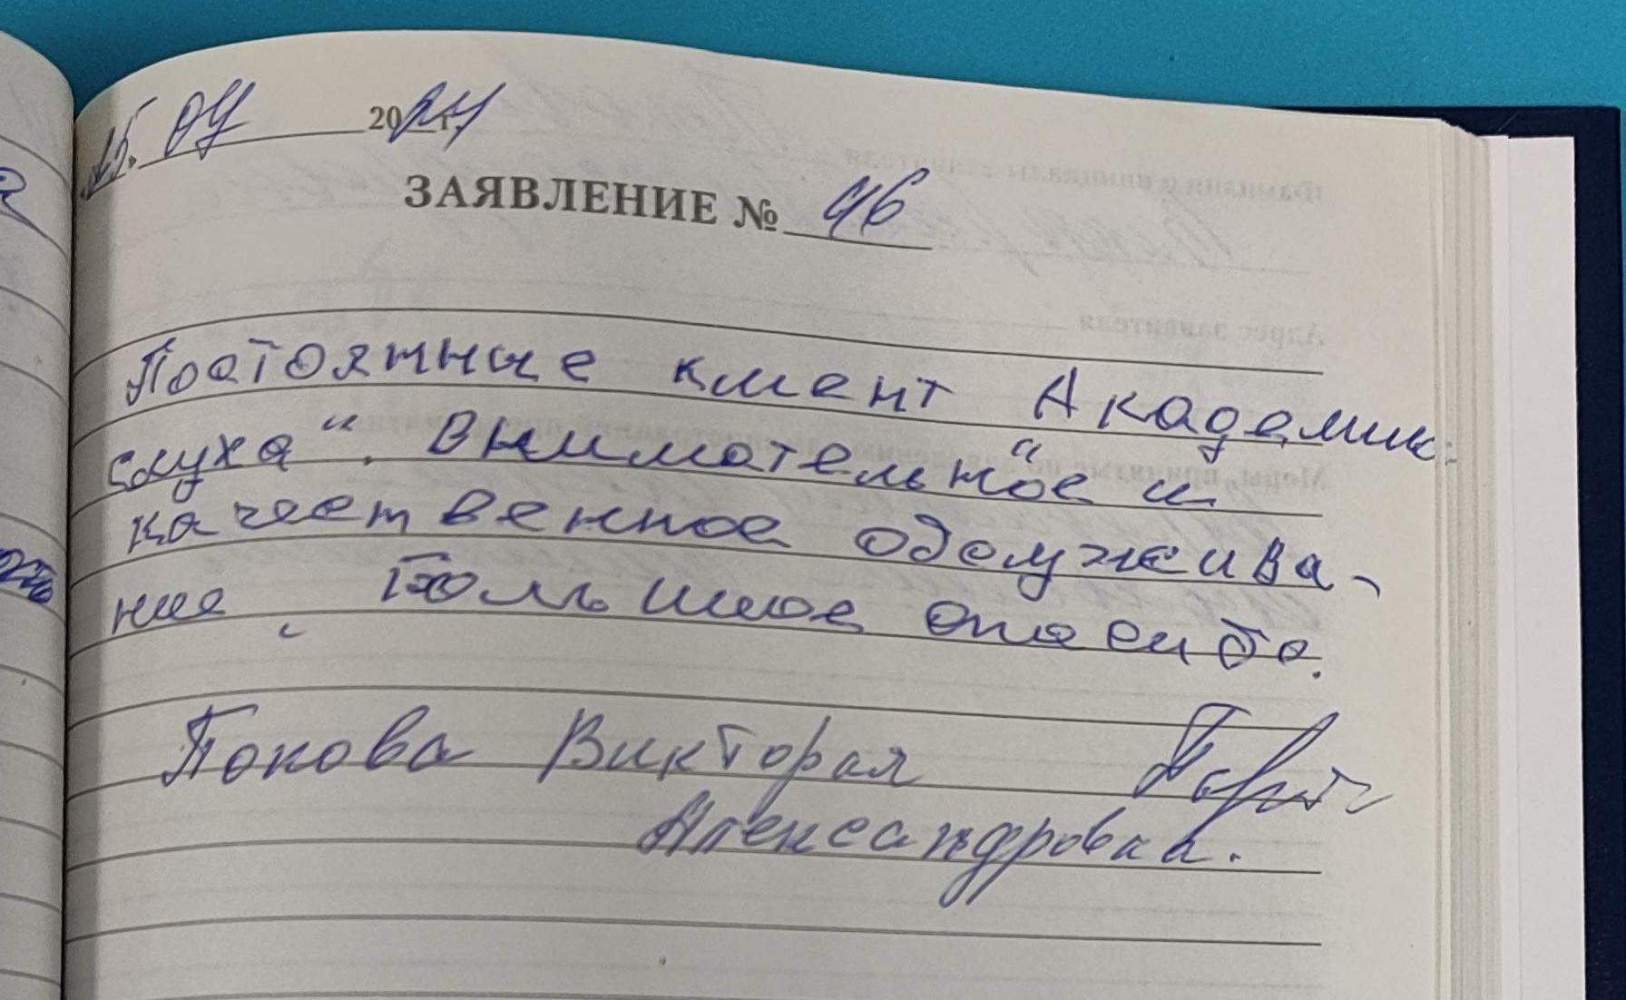 25.04 2024 г.
ЗАЯВЛЕНИЕ № 46
Постоянные клиент Академии
слуха". Внимательное и
качественное обслужива-
ние. Большое спасибо.
Попова Виктория
Александровна.